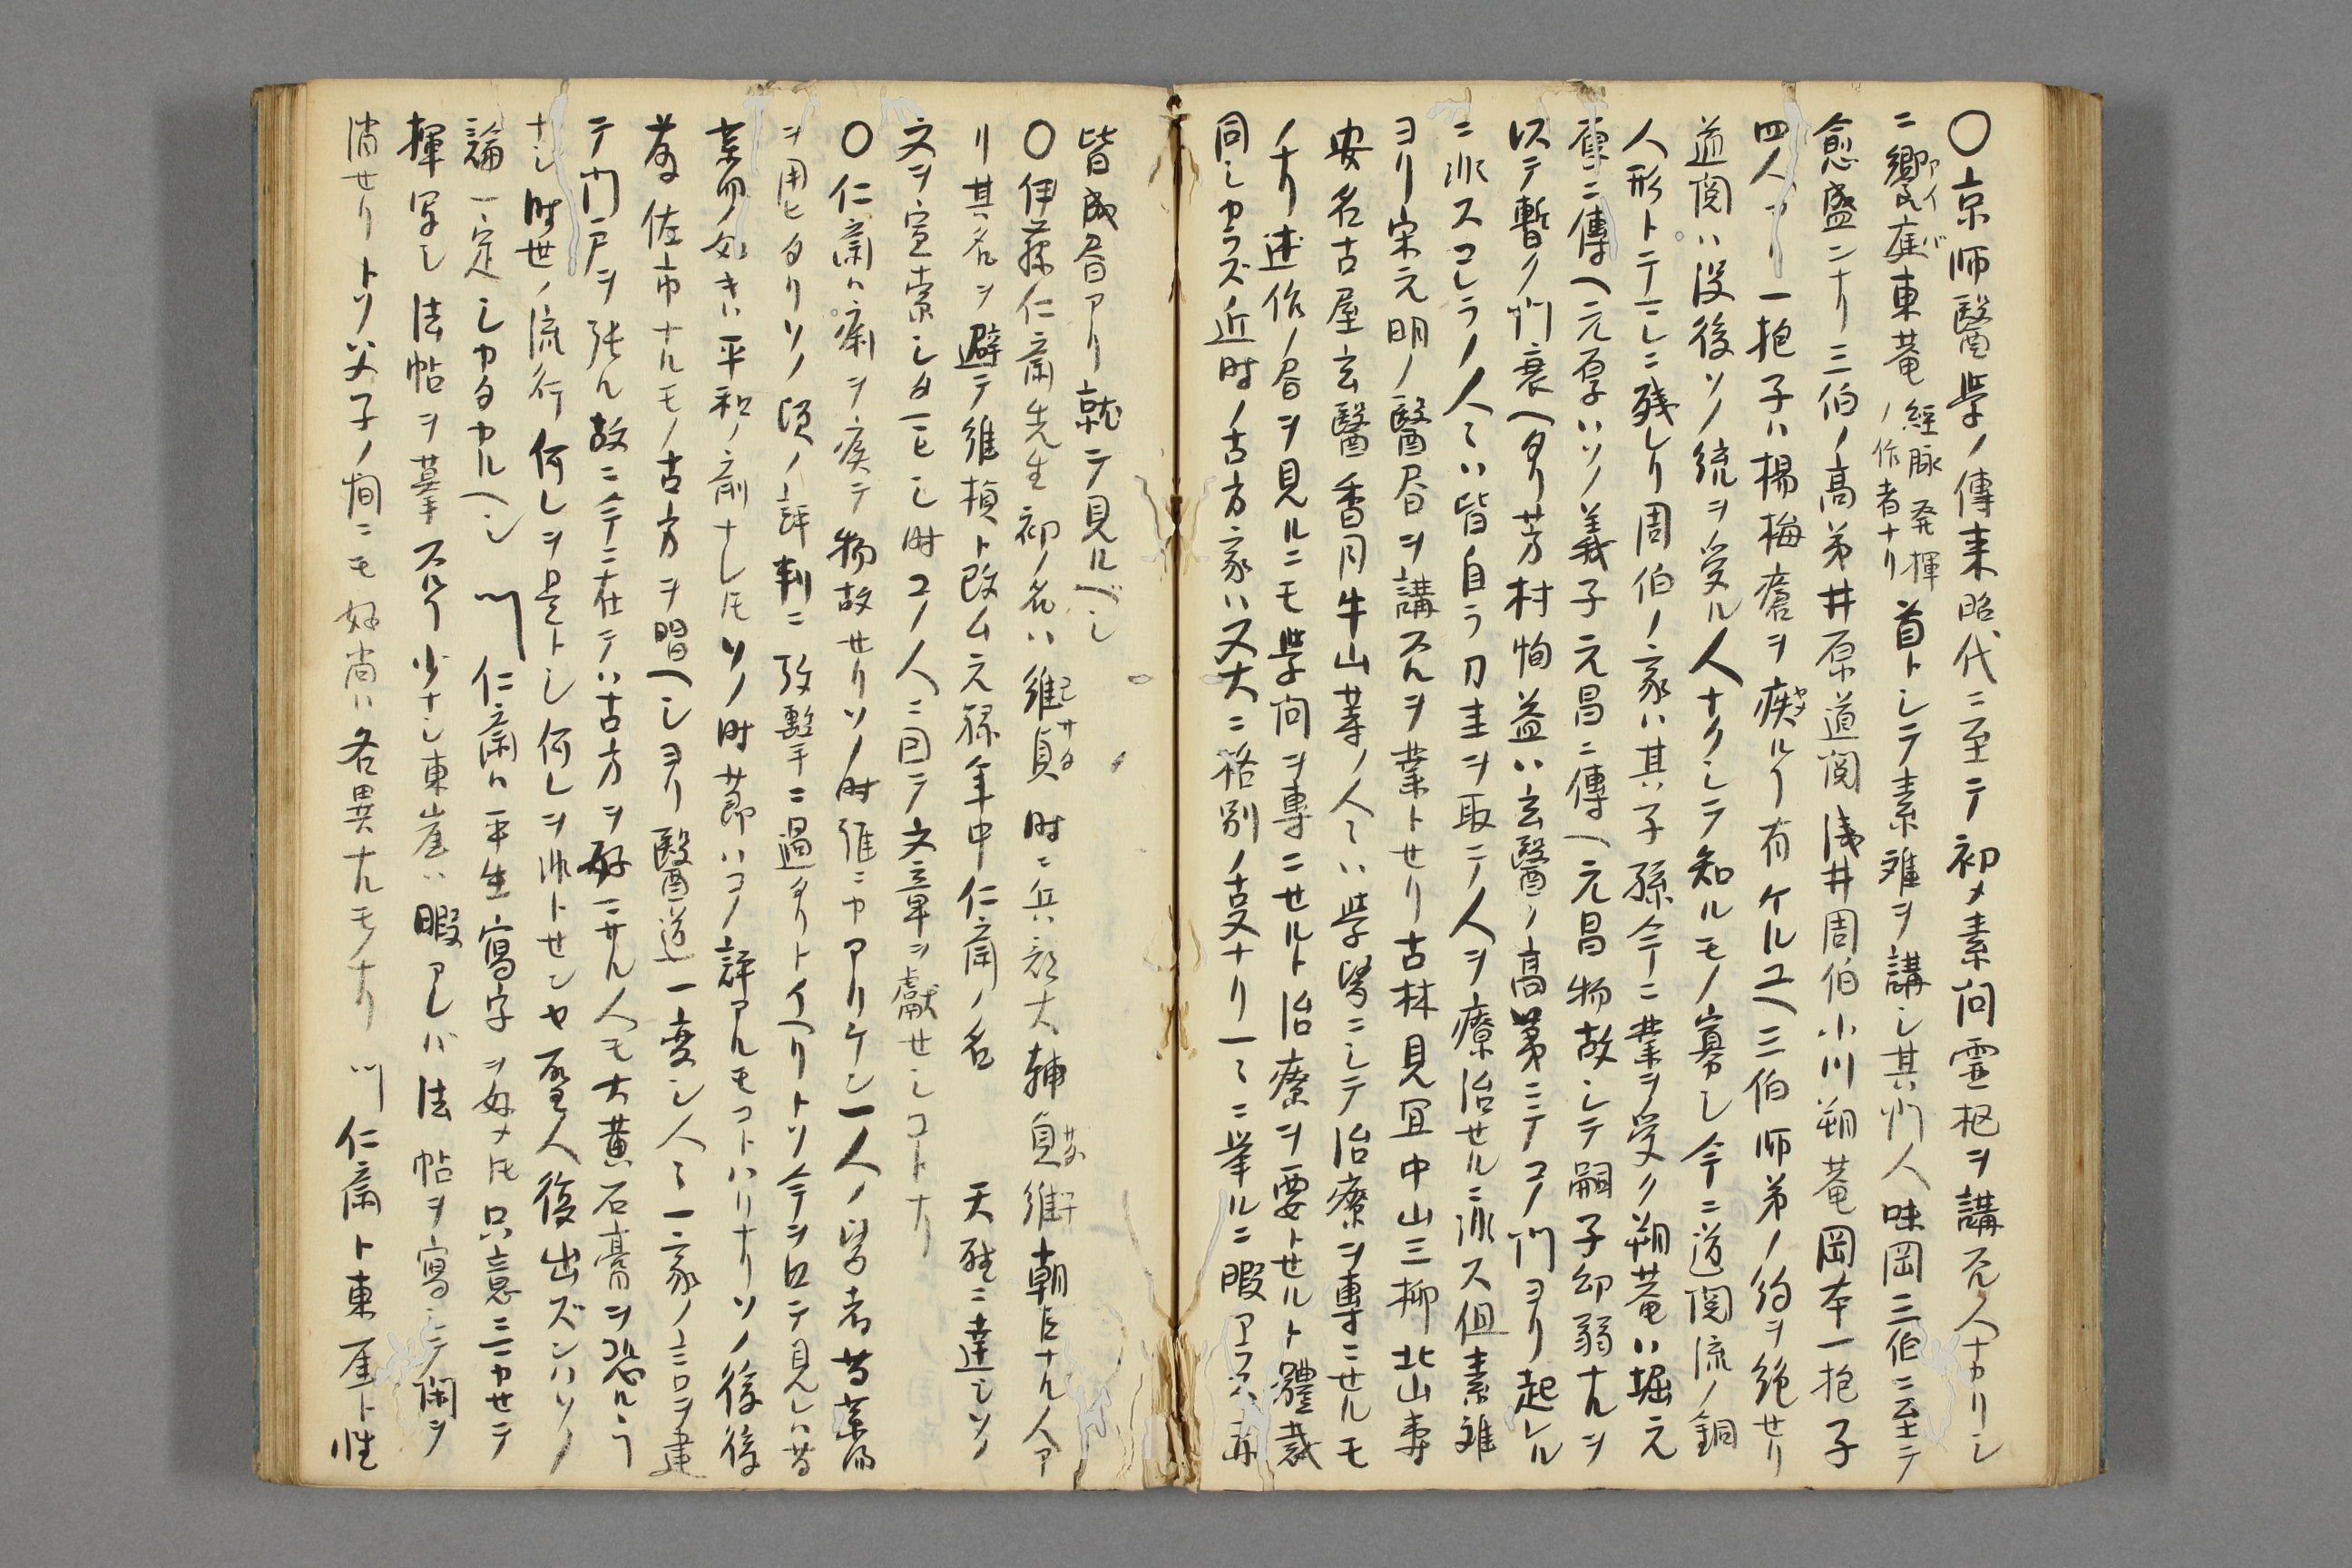 〇京師醫學ノ傳来昭代ニ至テ初メ素問霊枢ヲ講スル人ナカリシ
ニ饗庭東菴 経脉発揮ノ作者ナリ 首トシテ素難ヲ講シ其門人味岡三伯ニ至テ
アイバ
愈盛ンナリ三伯ノ高弟井原道閲浅井周伯小川朔菴岡本一抱子
四人アリ一抱子ハ楊梅瘡ヲ疾ルヿ有ケルユヘ三伯師弟ノ約ヲ絶セリ
道閲ハ没後ソノ統ヲ受ル人ナクシテ知ルモノ寡シ今ニ道閲流ノ銅
人形トテコレニ残レリ周伯ノ家ハ其子孫今ニ業ヲ受ク朔菴ハ堀元
厚ニ傳ヘ元厚ハソノ義子元昌ニ傳ヘ元昌物故シテ嗣子幼弱ナルヲ
以テ暫ク門衰ヘタリ芳村恂益ハ玄醫ノ高第ニテコノ門ヨリ起レル
ニ派スコレラノ人々ハ皆自ラ刀圭ヲ取テ人ヲ療治セルニ派ス但素難
ヨリ宋元明ノ醫書ヲ講スルヲ業トセリ古林見宜中山三柳北山寿
安名古屋玄醫香月牛山等ノ人々ハ學習ニシテ治療ヲ專ニセルモ
ノナリ述作ノ書ヲ見ルニモ學問ヲ專ニセルト治療ヲ要トセルト體裁
同シカラズ近時ノ古方家ハ又大ニ格別ノ叓ナリ一々ニ挙ルニ暇アラス
皆成書アリ就テ見ルベシ
〇伊藤仁齋先生初ノ名ハ維貞時ニ兵部大輔貞維朝臣ナル人ア
リ其名ヲ避テ維楨ト改ム元禄年中仁齋ノ名 天聴ニ達シソノ
文ヲ宣索シタマヒシ時コノ人ニ因テ文章ヲ獻セシコトナリ
〇仁齋ハ痢ヲ疾テ物故セリソノ時誰ニカアリケン一人ノ醫者芍薬湯
ヲ用ヒタリソノ頃ノ評判ニ攻撃ニ過タリトイヘリトソ今ヲ以テ見レハ芍
薬湯ノ如キハ平和ノ剤ナレ𪜈ソノ時節ハコノ評アルモコトハリナリソノ後後
藤佐市ナルモノ古方ヲ唱ヘシヨリ醫道一変シ人々一家ノ言ヲ建
テ門戸ヲ張ル故ニ今ニ在テハ古方ヲ好ニサル人モ大黄石膏ヲ恐ルヽヿ
ナシ時世ノ流行何レヲ是トシ何レヲ非トセンヤ聖人復出ズンハソノ
論一定シカタカルヘシ 仁齋ハ平生寫字ヲ好メ𪜈只意ニマカセテ
揮写シ法帖ヲ摹スルヿ少ナシ東崖ハ暇アレバ法帖ヲ寫シテ閑ヲ
消セリトソ父子ノ間ニモ好尚ハ各異ナルモノナリ 仁齋ト東厓ト性